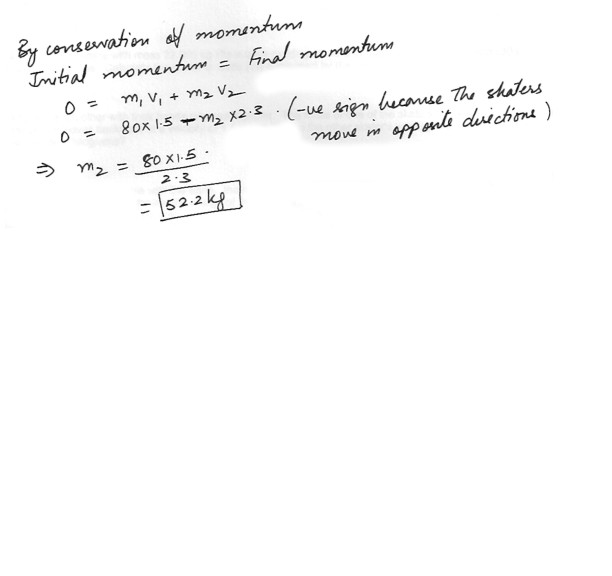 By conservation of momentum
Initial momentum = Final momentum
0 = m₁ V₁ + m₂ V₂
0 = 80 x 1.5 - m₂ x 2.3 . (-ve sign because The skaters
move in opposite directions)
⇒ m₂ = 80 x 1.5 .
2.3
= 52.2 kg